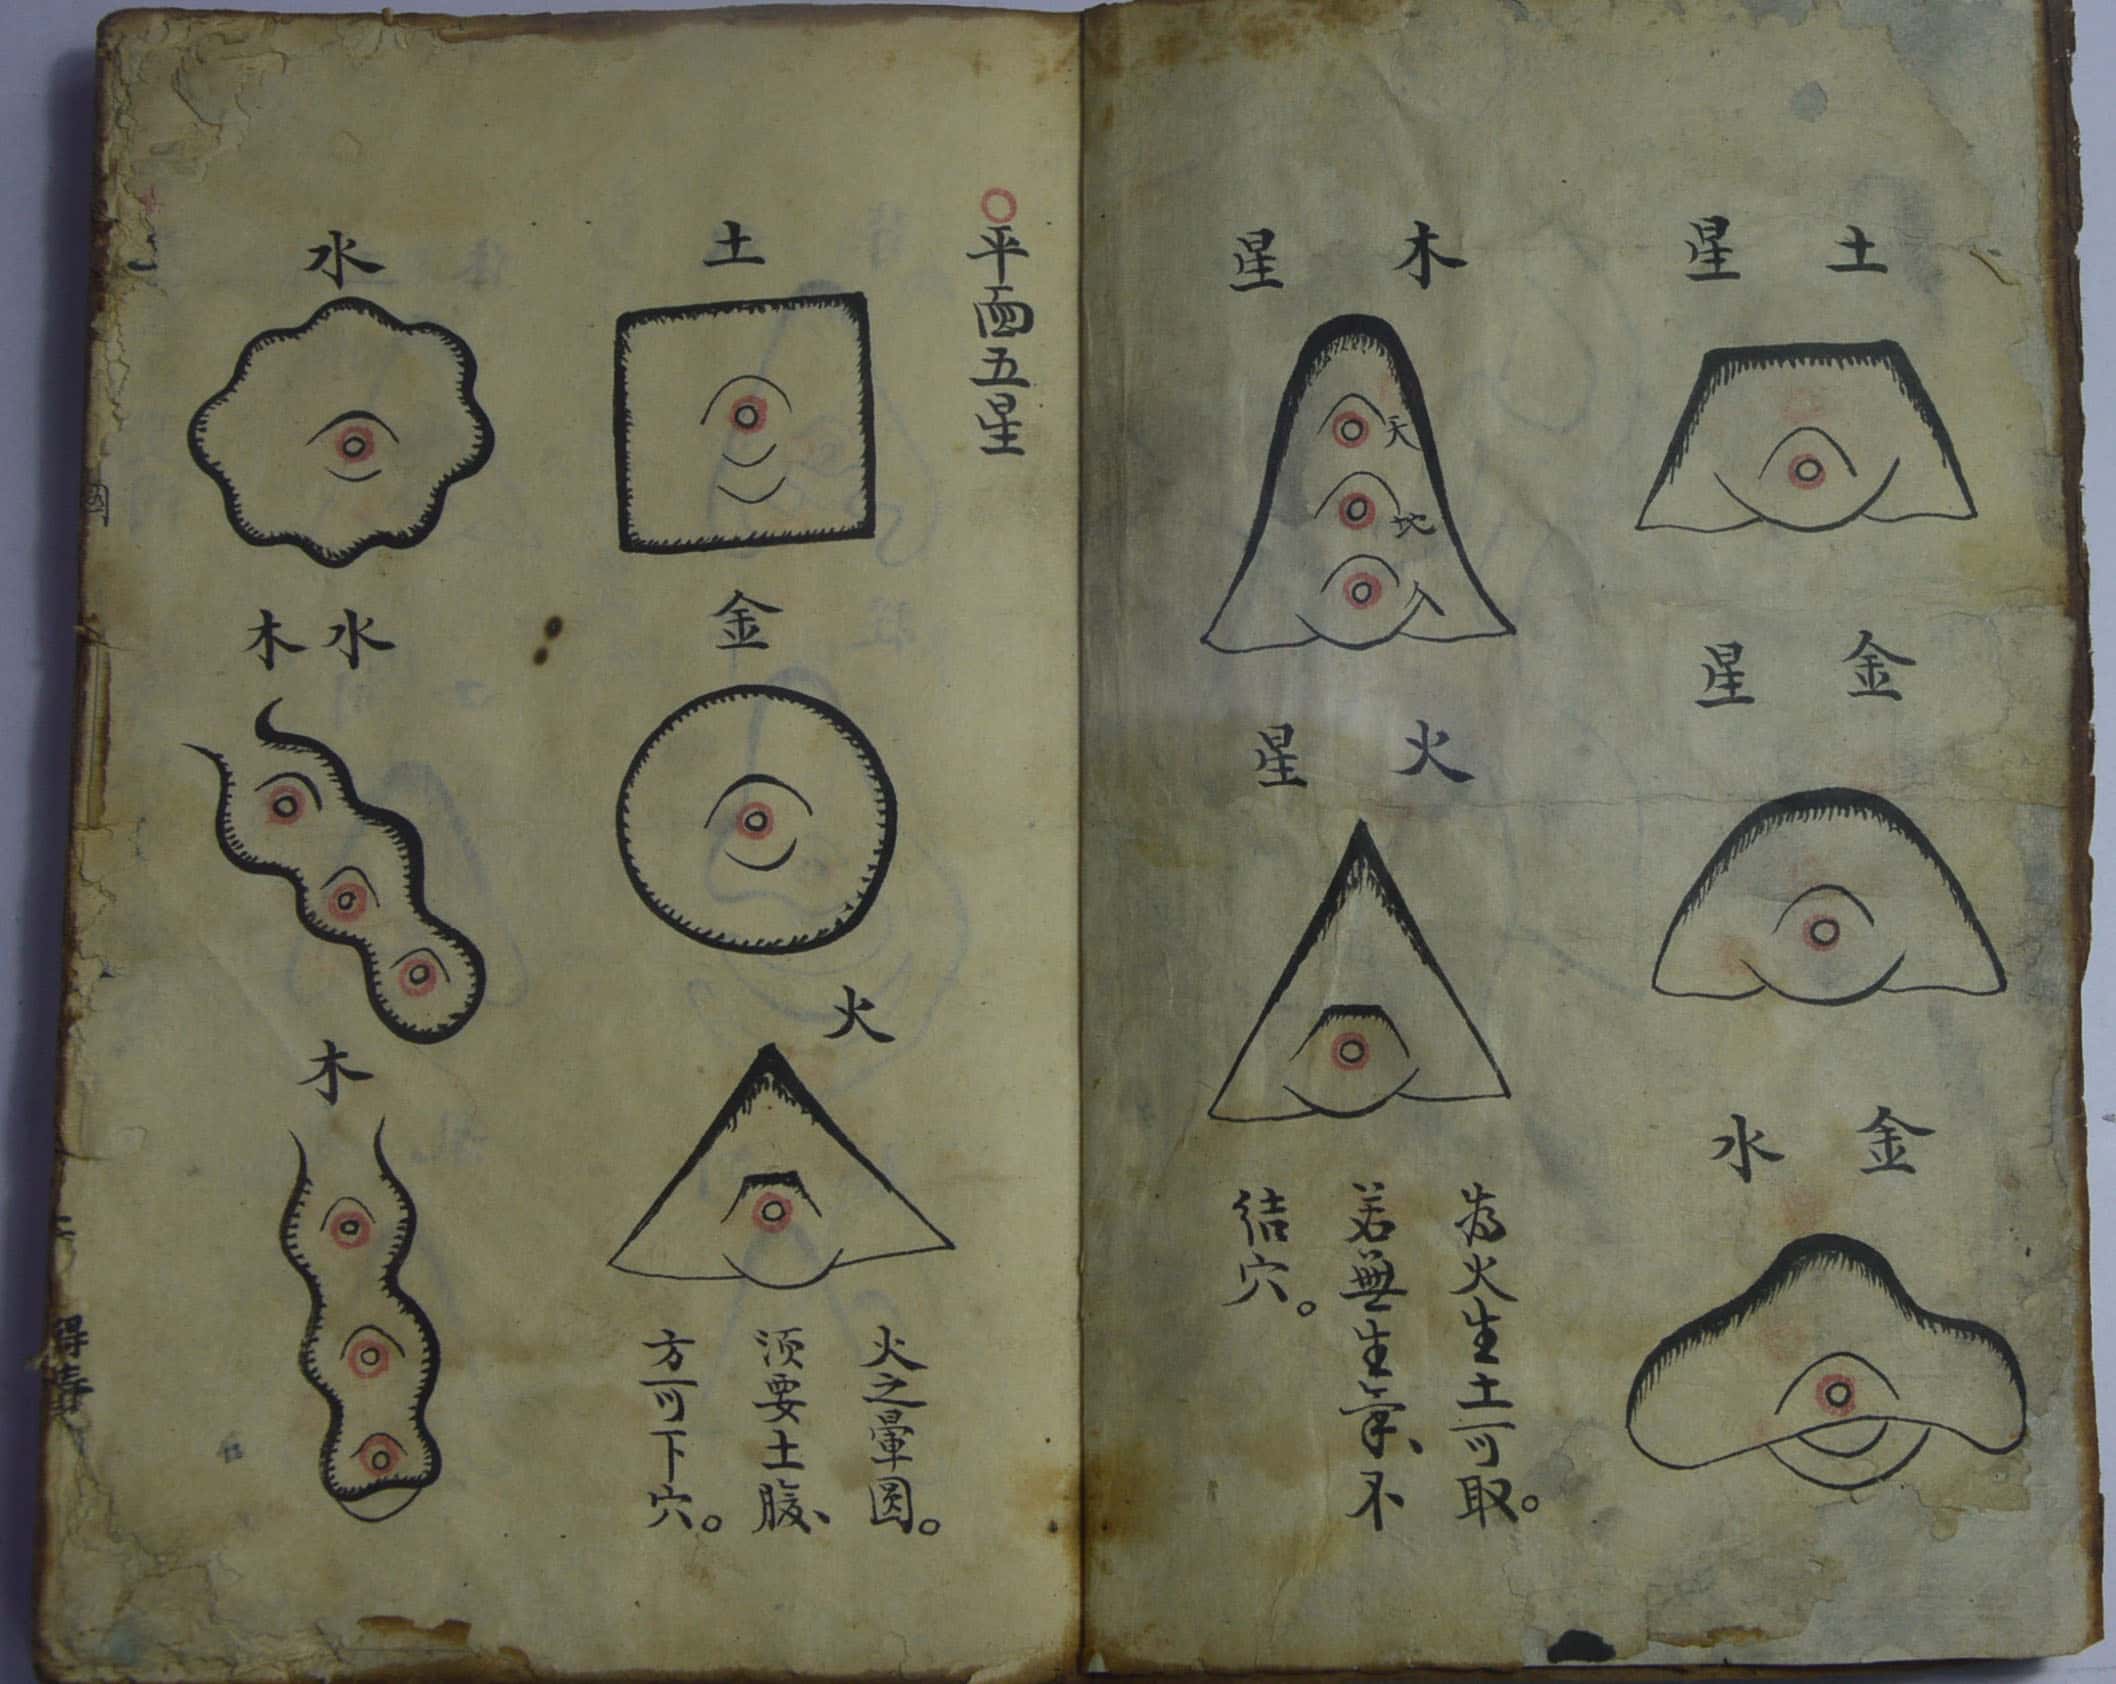 土星
金星
金水
木星
天
地
人
火星
為火生土可取。
若無生氣、不
结穴。
平面五星
土
金
火
火之暈圆。
须要土腹、
方可下穴。
水
水木
木